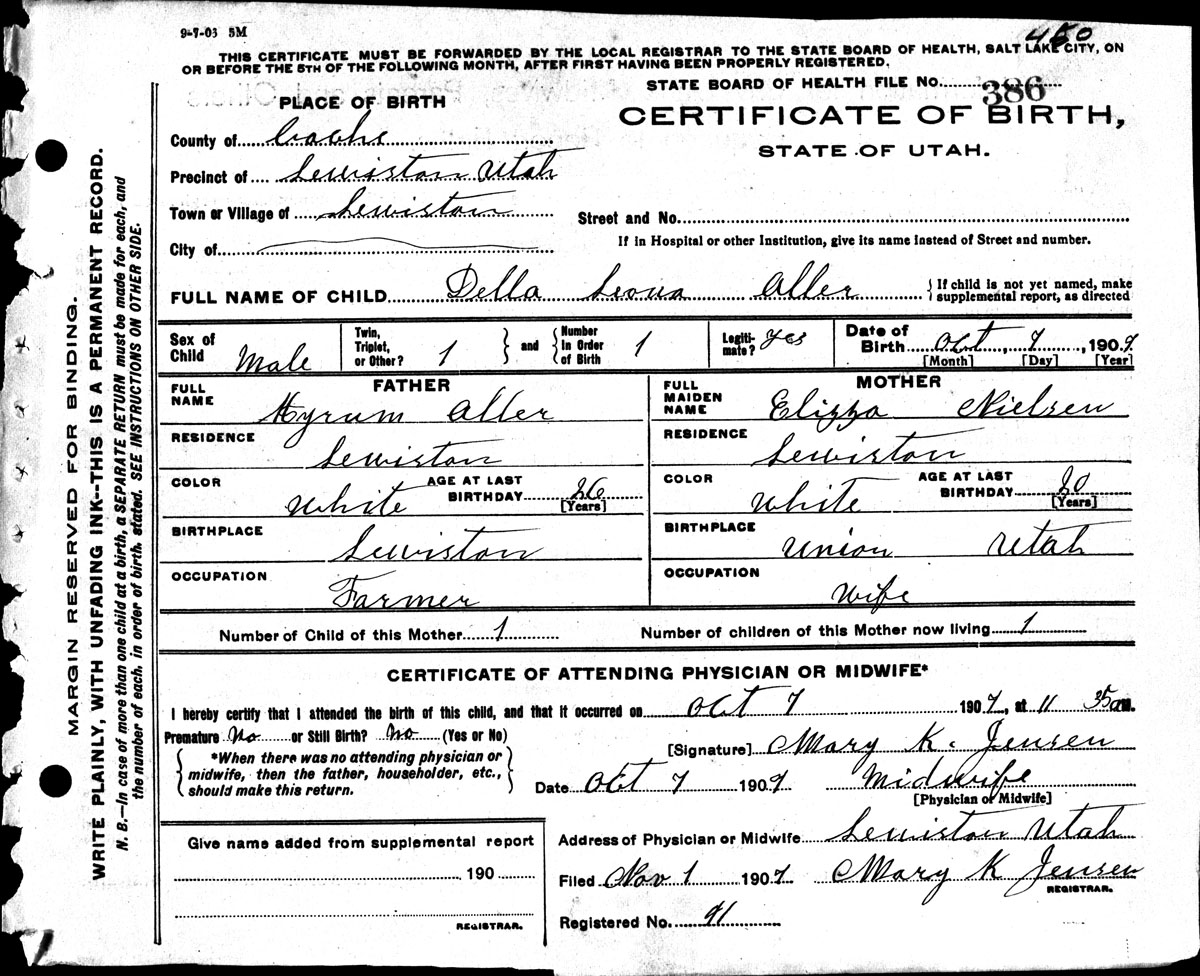 9-7-03 5M
450
THIS CERTIFICATE MUST BE FORWARDED BY THE LOCAL REGISTRAR TO THE STATE BOARD OF HEALTH, SALT LAKE CITY, ON
OR BEFORE THE 5TH OF THE FOLLOWING MONTH, AFTER FIRST HAVING BEEN PROPERLY REGISTERED.
STATE BOARD OF HEALTH FILE No. 386
PLACE OF BIRTH
CERTIFICATE OF BIRTH,
STATE OF UTAH.
County of Cache
Precinct of Lewiston Utah
Town or Village of Lewiston
Street and No.
City of
If in Hospital or other Institution, give its name instead of Street and number.
FULL NAME OF CHILD Della Leona Aller
{ If child is not yet named, make
supplemental report, as directed
Sex of Child Male
Twin, Triplet, or Other? 1
and
Number in Order of Birth 1
Legiti-mate? Yes
Date of Birth Oct, 7, 1907
[Month] [Day] [Year]
FATHER
FULL NAME Hyrum Aller
RESIDENCE Lewiston
COLOR White
AGE AT LAST BIRTHDAY 26
[Years]
BIRTHPLACE Lewiston
OCCUPATION Farmer
MOTHER
FULL MAIDEN NAME Elizza Nielsen
RESIDENCE Lewiston
COLOR White
AGE AT LAST BIRTHDAY 20
[Years]
BIRTHPLACE Union Utah
OCCUPATION Wife
Number of Child of this Mother 1
Number of children of this Mother now living 1
CERTIFICATE OF ATTENDING PHYSICIAN OR MIDWIFE*
I hereby certify that I attended the birth of this child, and that it occurred on Oct 7 1907, at 11 35 am.
Premature No or Still Birth? No (Yes or No)
*When there was no attending physician or
midwife, then the father, householder, etc.,
should make this return.
[Signature] Mary K. Jensen
Date Oct 7 1907 Midwife
[Physician or Midwife]
Give name added from supplemental report
190
REGISTRAR.
Address of Physician or Midwife Lewiston Utah
Filed Nov 1 1907 Mary K Jensen
REGISTRAR.
Registered No. 91
MARGIN RESERVED FOR BINDING.
WRITE PLAINLY, WITH UNFADING INK--THIS IS A PERMANENT RECORD.
N. B.—In case of more than one child at a birth, a SEPARATE RETURN must be made for each, and
the number of each, in order of birth, stated. SEE INSTRUCTIONS ON OTHER SIDE.